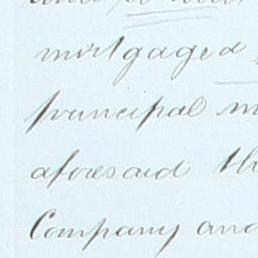 mortgaged
principal m
aforesaid th
Company and